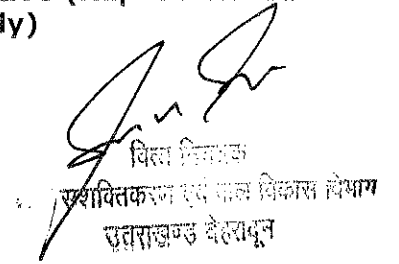 ly)
वित्त नियंत्रक
सशक्तिकरण एवं बाल विकास विभाग
उत्तराखण्ड देहरादून